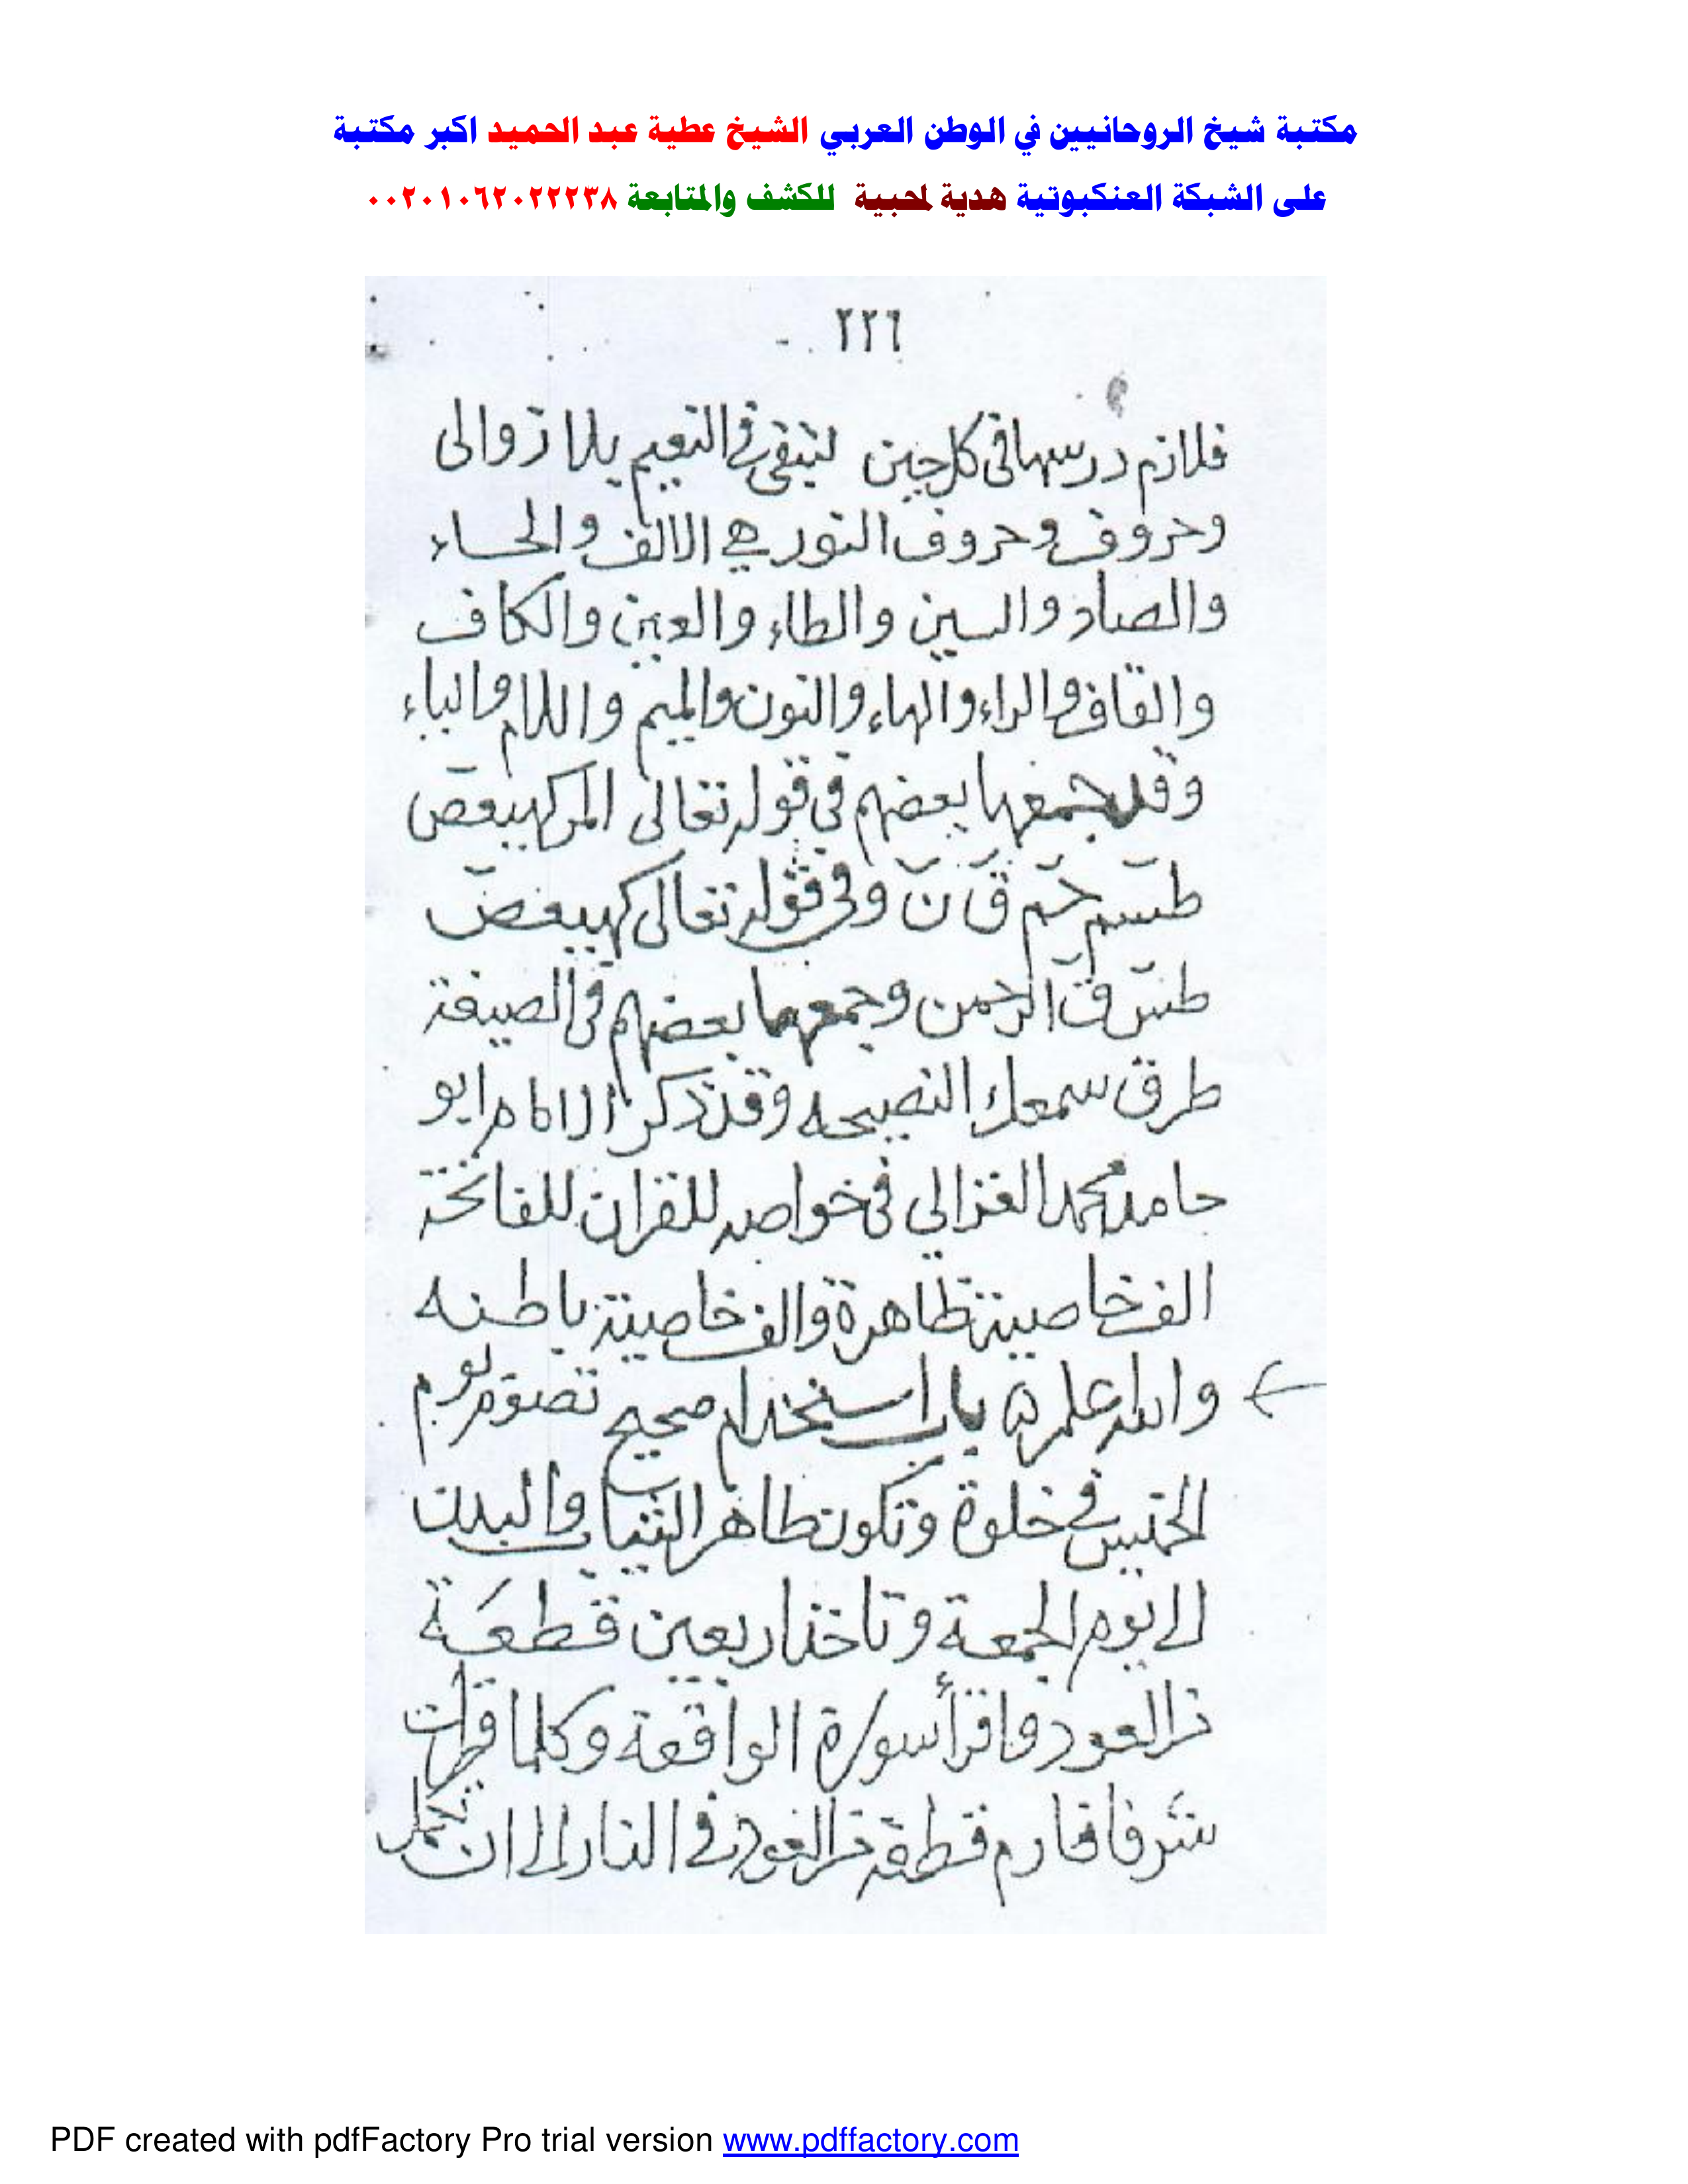 مكتبة شيخ الروحانيين في الوطن العربي الشيخ عطية عبد الحميد اكبر مكتبة
على الشبكة العنكبوتية هدية لمحبية للكشف والمتابعة ٠٠٢٠١٠٦٢٠٢٢٢٣٨
٢٢٦
فلازم درسها في كل حين لتبقى في النعيم بلا زوالى
وحروف وحروف النور هي الالف والحاء
والصاد والسين والطاء والعين والكاف
والقاف والراء والهاء والنون والميم واللام والياء
وقد جمعها بعضهم في قوله تعالى المر كهيعص
طسم حم ق ن وفي قوله تعالى كهيعص
طس ق الرحمن وجمعها بعضهم في الصيغة
طرق سمعك النصيحه وقد ذكر الامام ابو
حامد محمد الغزالي في خواصه للقران للفاتحة
الف خاصية ظاهرة والف خاصية باطنه
والله اعلم باب استخدام صحيح تصوم يوم
الخميس في خلوة وتكون طاهر الثياب والبدن
الى يوم الجمعة وتاخذ اربعين قطعة
من العود واقرأ سورة الواقعة وكلما قرات
شرفا فارم قطعة من العود في النار الى ان تكمل
PDF created with pdfFactory Pro trial version www.pdffactory.com